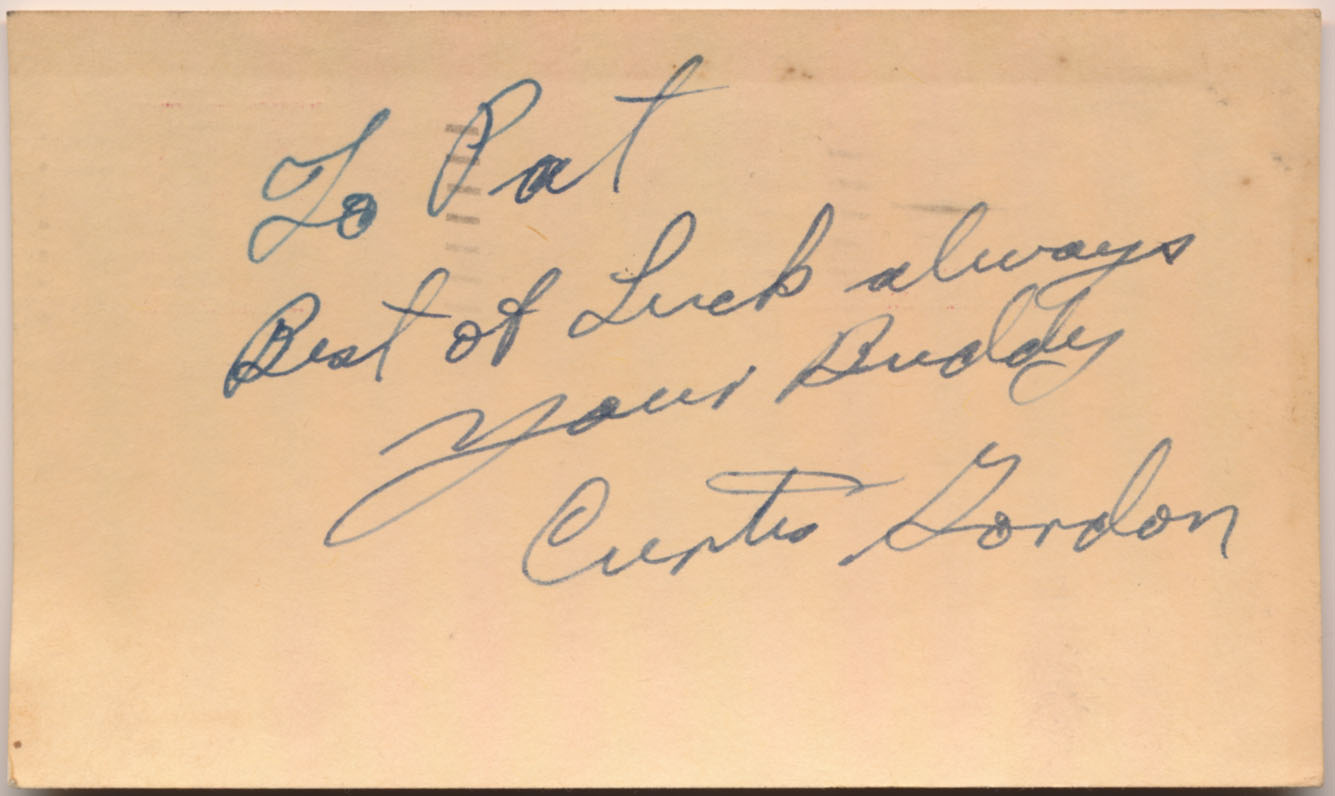 To Pat
Best of Luck always
Your Buddy
Curtis Gordon